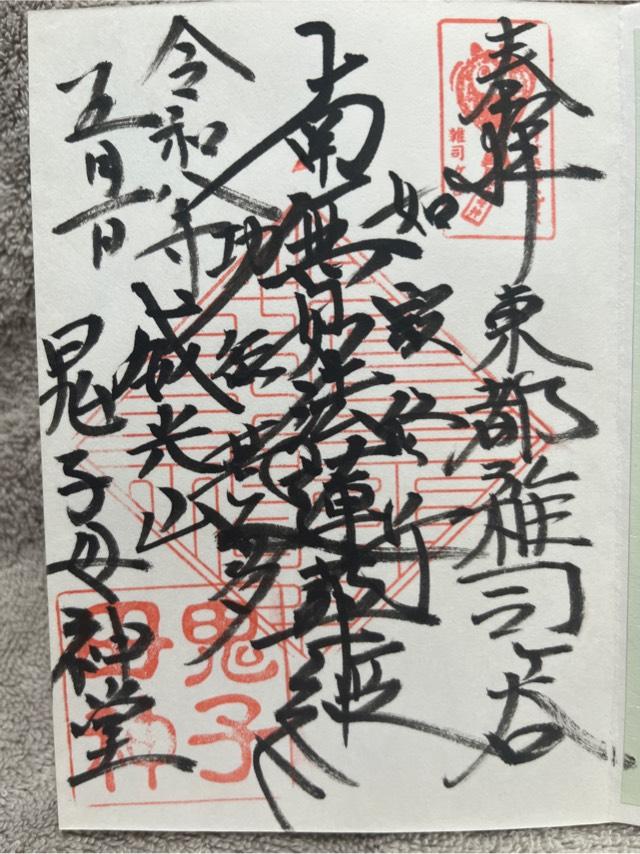 奉拝
東都雑司ヶ谷
如説修行
南無妙法蓮華経
功徳甚多
令和八年
五月一日
威光山
鬼子母神堂
鬼子
母神
雑司